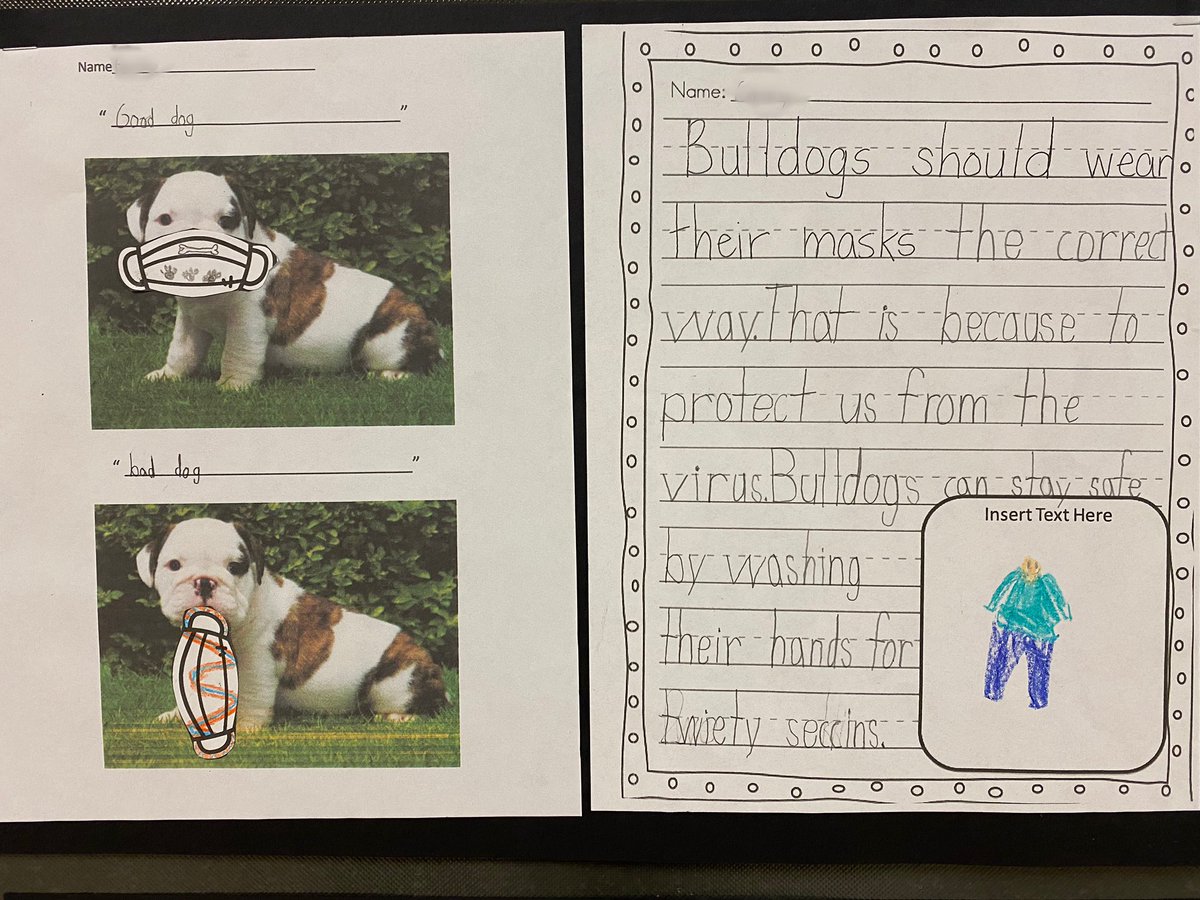 Name
"Good dog"
"bad dog"
Name:
Bulldogs should wear
their masks the correct
way. That is because to
protect us from the
virus. Bulldogs can stay safe
by washing
their hands for
twiety seccins.
Insert Text Here